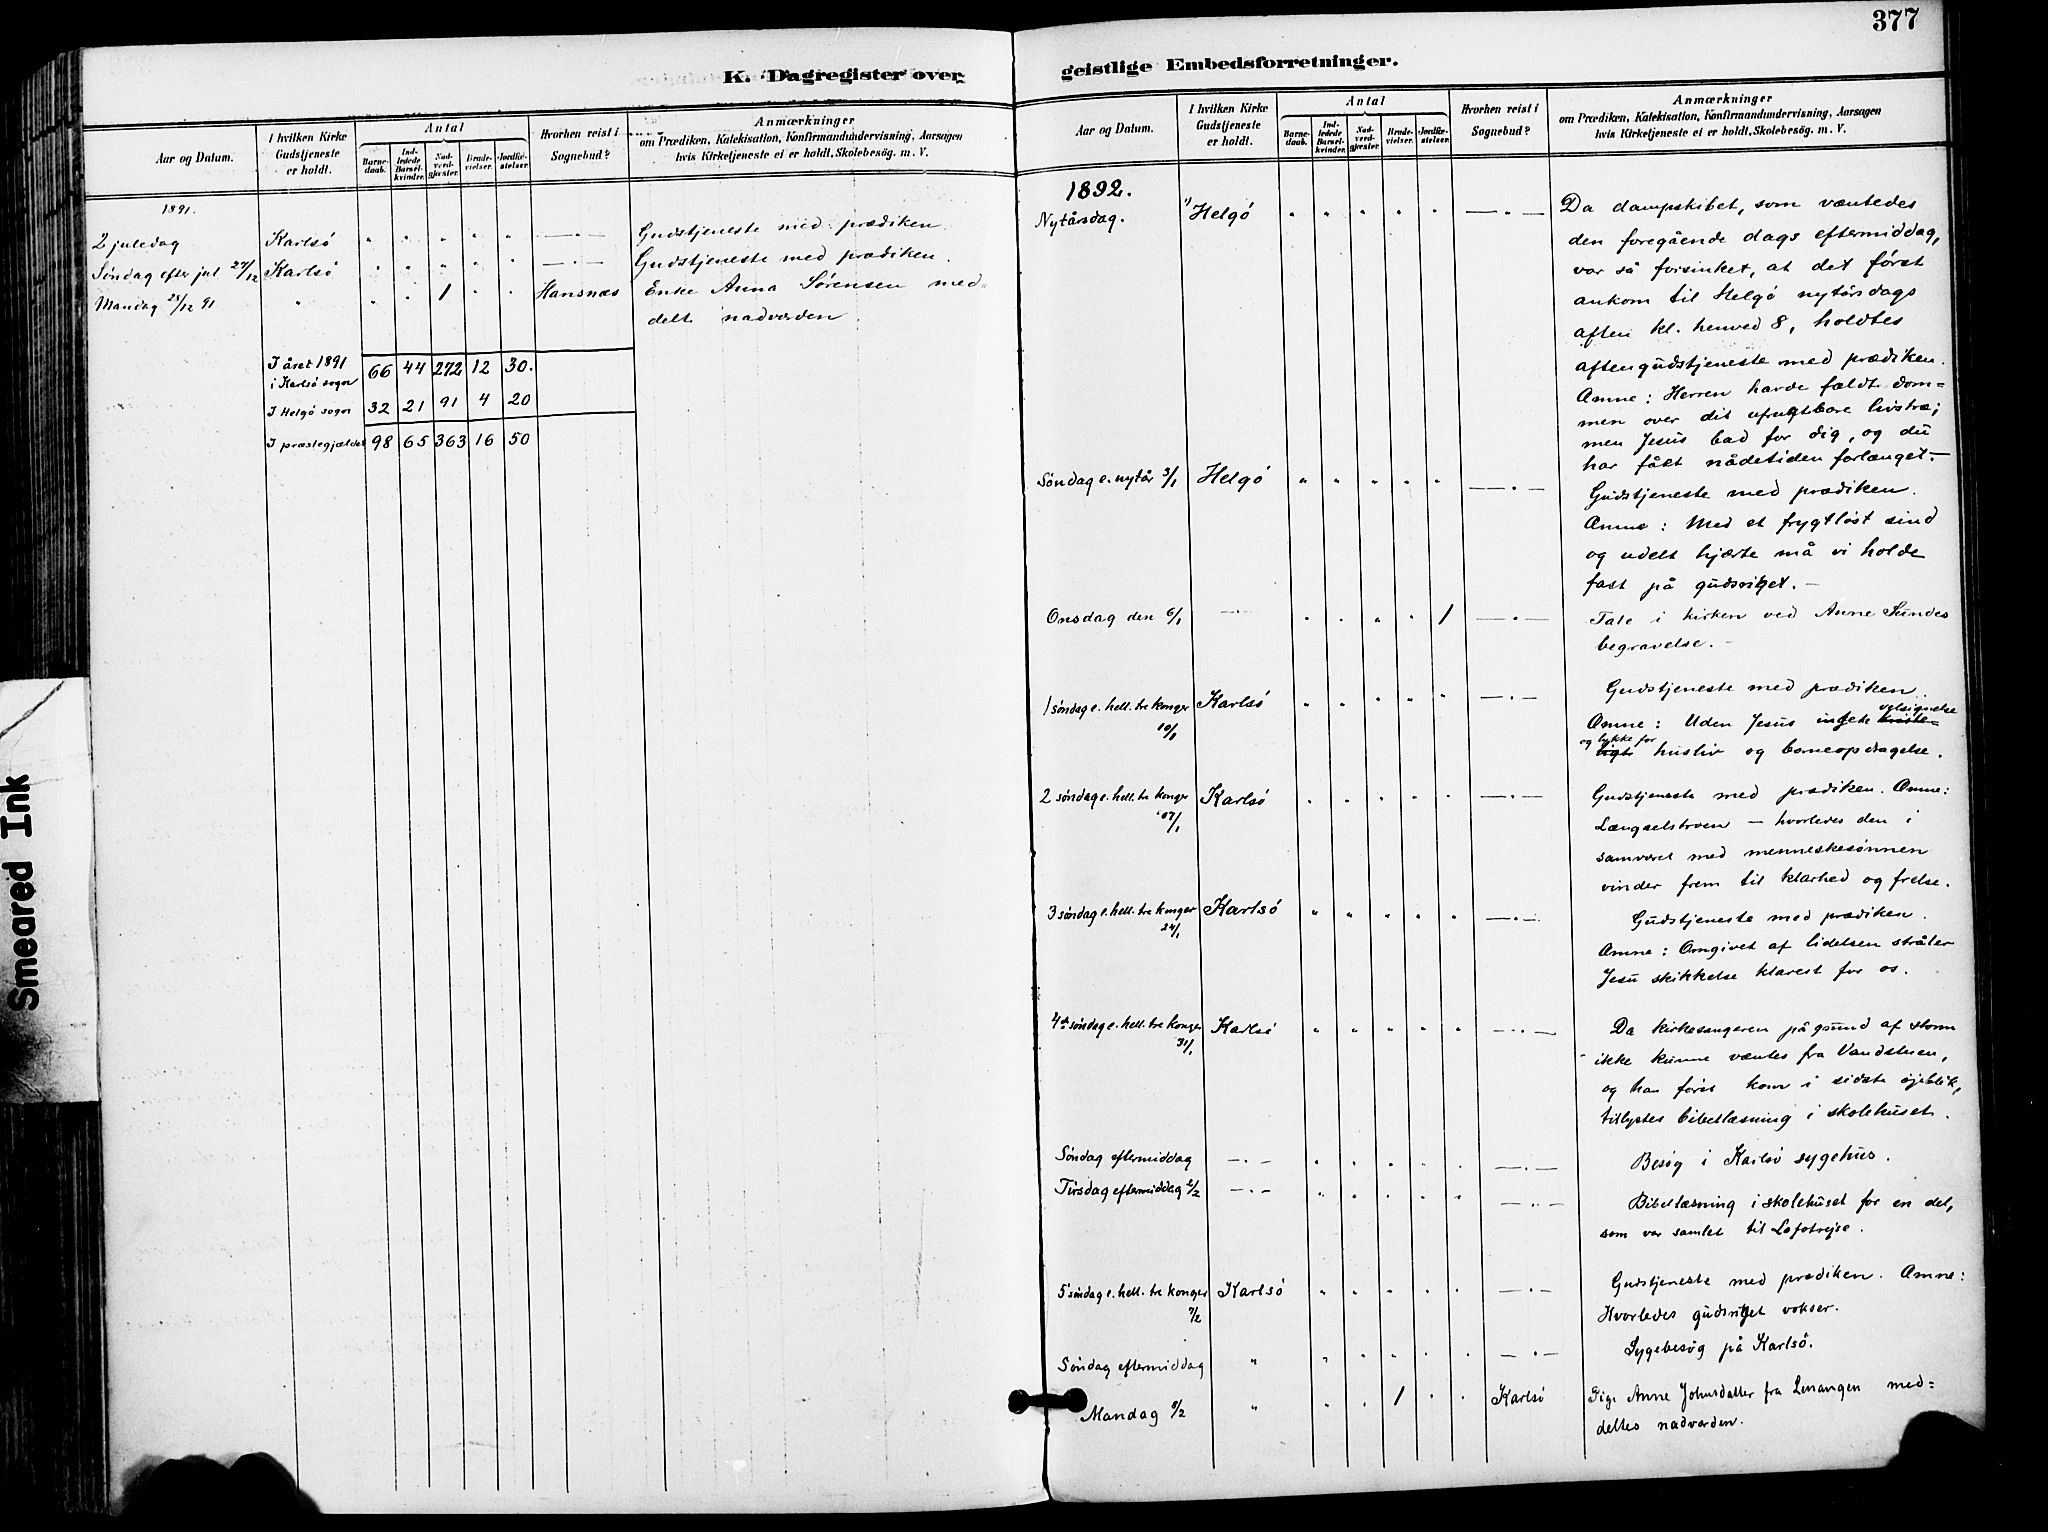 377
K. Dagregister over
Aar og Datum.
I hvilken Kirke Gudstjeneste er holdt.
Antal
Barnedaab.
Indledede Barselkvinder.
Nadverdgjæster.
Brudevielser.
Jordfæstelser.
Hvorhen reist i Sognebud?
Anmærkninger
om Prædiken, Katekisation, Konfirmandundervisning, Aarsagen
hvis Kirketjeneste ei er holdt, Skolebesög. m. V.
1891.
2 juledag Karlsö " " " " " —"— Gudstjeneste med prædiken.
Søndag efter jul 27/12 Karlsö " " " " " —"— Gudstjeneste med prædiken.
Mandag 28/12 91 " " " 1 " " Hansnæs Enke Anna Sørensen med=
delt nadverden
I året 1891
i Karlsö sogn 66 44 272 12 30.
I Helgö sogn 32 21 91 4 20
I præstegjældet 98 65 363 16 50
geistlige Embedsforretninger.
Aar og Datum.
I hvilken Kirke Gudstjeneste er holdt.
Antal
Barnedaab.
Indledede Barselkvinder.
Nadverdgjæster.
Brudevielser.
Jordfæstelser.
Hvorhen reist i Sognebud?
Anmærkninger
om Prædiken, Katekisation, Konfirmandundervisning, Aarsagen
hvis Kirketjeneste ei er holdt, Skolebesög. m. V.
1892.
Nytårsdag. 1/ Helgö " " " " " —"— Da dampskibet, som væntedes
den foregående dags eftermiddag,
var så forsinket, at det først
ankom til Helgö nytårsdags
aften kl. henved 8, holdtes
aftengudstjeneste med prædiken.
Æmne: Herren havde fældt dom=
men over dit ufrugtbare livstræ;
men Jesus bad for dig, og du
har fåt nådetiden forlænget.—
Søndag e. nytår 3/1 Helgö " " " " " —"— Gudstjeneste med prædiken.
Æmne: Med et frygtløst sind
og udelt hjærte må vi holde
fast på gudsriget. —
Onsdag den 6/1 —"— " " " " 1 —"— Tale i kirken ved Anne Sundes
begravelse. —
1 søndag e. hell. tre konger Karlsö " " " " " —"— Gudstjeneste med prædiken.
10/1 Æmne: Uden Jesus ingen velsignelse
og lykke for husliv og børneopdragelse.
2 søndag e. hell. tre konger Karlsö " " " " " —"— Gudstjeneste med prædiken. Æmne:
17/1 Længselstroen — hvorledes den i
samværet med menneskesønnen
vinder frem til klarhed og frelse.
3 søndag e. hell. tre konger Karlsö " " " " " —"— Gudstjeneste med prædiken.
24/1 Æmne: Omgivet af lidelsen stråler
Jesu skikkelse klarest for os.
4de søndag e. hell. tre konger Karlsö " " " " " —"— Da kirkesangeren på grund af storm
31/1 ikke kunne væntes fra Vandstuen,
og han først kom i sidste øjeblik,
tillystes bibellæsning i skolehuset.
Søndag eftermiddag —"— " " " " " —"— Besøg i Karlsö sygehus.
Tirsdag eftermiddag 2/2 —"— " " " " " —"— Bibellæsning i skolehuset for en del,
som var samlet til Lofotrejse.
5 søndag e. hell. tre konger Karlsö " " " " " —"— Gudstjeneste med prædiken. Æmne:
7/2 Hvorledes gudsriget vokser.
Søndag eftermiddag " " " " " " —"— Sygebesøg på Karlsö.
Mandag 8/2 " " " 1 " " Karlsö Pige Anne Johnsdatter fra Lenangen med=
deltes nadverden.
Smeared Ink